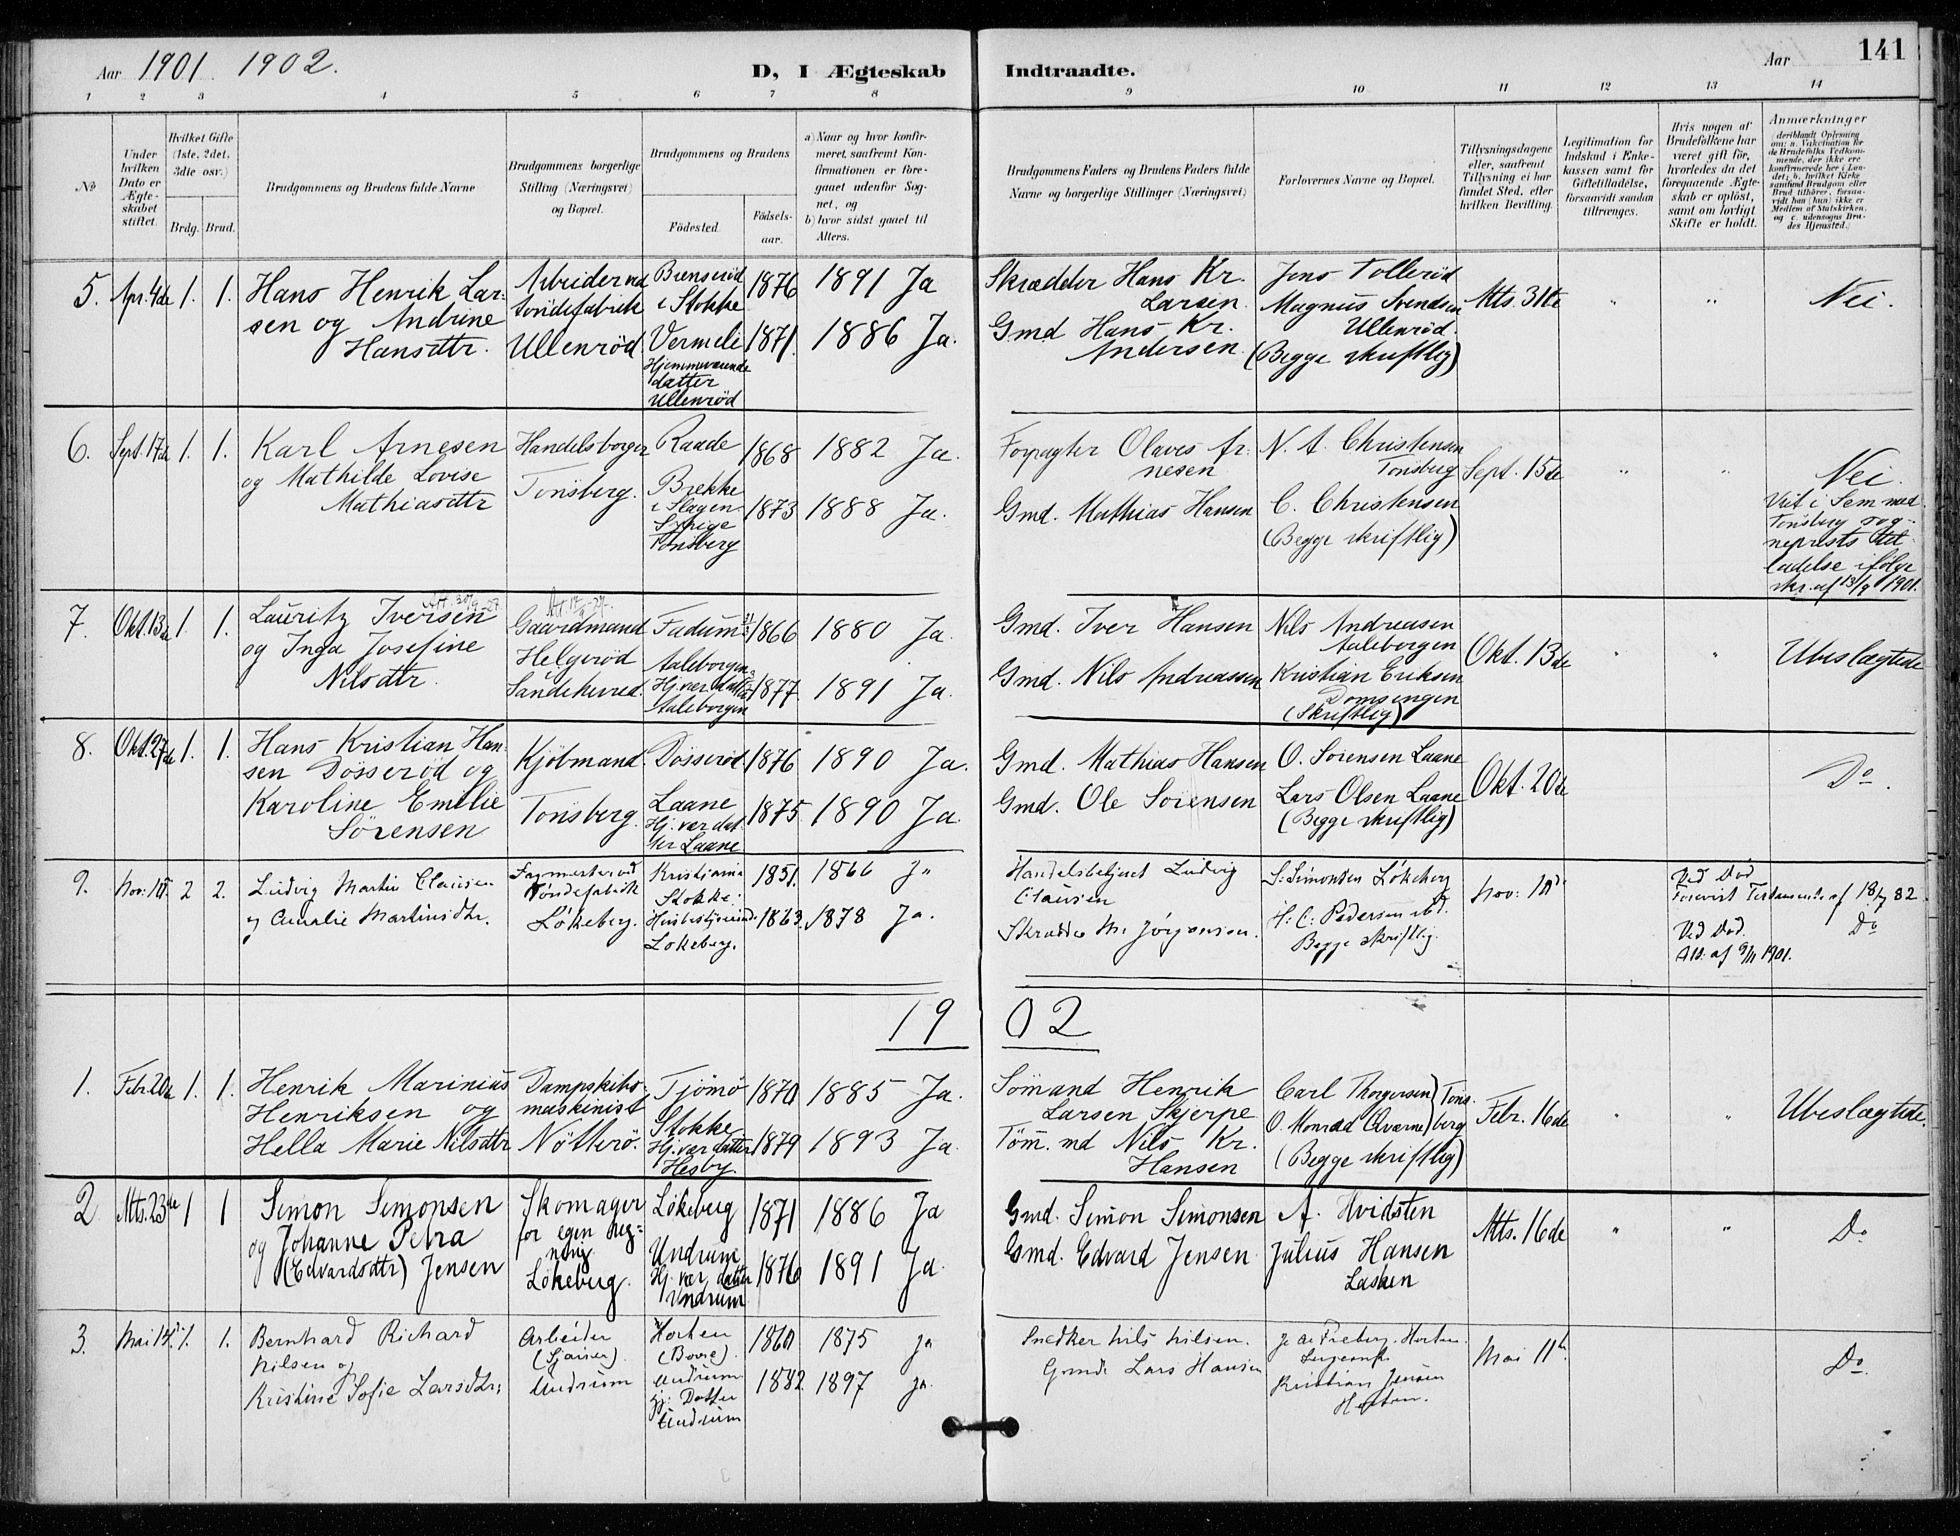 Aar 1901 1902.
D, I Ægteskab Indtraadte.
Aar 141
1 2 3 4 5 6 7 8 9 10 11 12 13 14
No
Under hvilken Dato er Ægteskabet stiftet.
Hvilket Gifte (1ste, 2det, 3die osv.)
Brdg. Brud.
Brudgommens og Brudens fulde Navne
Brudgommens borgerlige Stilling (Næringsvei) og Bopæl.
Brudgommens og Brudens
Fødested.
Fødselsaar.
a) Naar og hvor konfirmeret, saafremt Konfirmationen er foregaaet udenfor Sognet, og
b) hvor sidst gaaet til Alters.
Brudgommens Faders og Brudens Faders fulde Navne og borgerlige Stillinger (Næringsvei)
Forlovernes Navne og Bopæl.
Tillysningsdagene eller, saafremt Tillysning ei har fundet Sted, efter hvilken Bevilling.
Legitimation for Indskud i Enkekassen samt for Giftetilladelse, forsaavidt saadan tiltrænges.
Hvis nogen af Brudefolkene har været gift før, hvorledes da det foregaaende Ægteskab er opløst, samt om lovligt Skifte er holdt.
Anmærkninger
(deriblandt Oplysning om: a. Vakcination for de Brudefolks Vedkommende, der ikke ere konfirmerede her i Landet; b. hvilket Kirkesamfund Brudgom eller Brud tilhører, forsaavidt han (hun) ikke er Medlem af Statskirken, og c. udensogns Brudes Hjemsted.)
5. Apr. 4de 1. 1. Hans Henrik Larsen og Andrine Hansdtr.
Arbeider ved Töndefabrik Ullenröd
Brenseröd i Stokke 1876 1891 Ja
Vermeli Hjemmeværende datter Ullenröd 1871. 1886 Ja.
Skrædder Hans Kr. Larsen.
Gmd Hans Kr. Andersen.
Jens Tolleröd
Magnus Svendsen Ullenröd.
(Begge skriftlig)
Mts. 31te " " Nei.
6. Sept. 17de 1. 1. Karl Arnesen og Mathilde Lovise Mathiasdtr
Handelsborger Tönsberg.
Raade 1868 1882 Ja.
Brekke i Slagen Tönsberg 1873 1888 Ja.
Forpagter Olaves Arnesen
Gmd. Mathias Hansen
N. A. Christensen Tönsberg
C. Christensen
(Begge skriftlig)
Sept. 15de " " Nei.
Viet i Sem med Tönsberg sogneprests tilladelse ifölge skr. af 13/9 1901.
7. Okt. 13de 1. 1. Lauritz Iversen og Inga Josefine Nilsdtr.
Gaardmand Helgeröd Sandeherred.
Fadum 1866 1880 Ja.
Aaleborgen Hj. vær datter Aaleborgen 1877. 1891 Ja.
Gmd. Iver Hansen
Gmd. Nils Andreassen
Nils Andreasen Aaleborgen
Kristian Eriksen Domsengen
(Skriftlig)
Okt. 13de " " Ubeslægtede
8. Okt. 27de 1. 1. Hans Kristian Hansen Dösseröd og Karoline Emilie Sörensen
Kjöbmand. Tönsberg.
Dösseröd. 1876 1890 Ja.
Laane Hj. vær datter Laane 1875 1890 Ja.
Gmd. Mathias Hansen
Gmd. Ole Sörensen
O. Sörensen Laane
Lars Olsen Laane
(Begge skriftlig)
Okt. 20de Do.
9. Nov: 10de 2 2. Ludvig Martin Clausen og Amalie Martinsdtr.
Tøndefabrik Løkeberg.
Kristiania 1851. 1866 Ja
Stokke: Husbestyrerinde Løkeberg. 1863. 1878 Ja.
Handelsbetjent Ludvig Clausen
Skrædder M. Jørgensen.
S: Simonsen Løkeberg
H: C: Pedersen ibd.
Begge skriftlig.
Nov: 10de
Ved Død Forevist Testamente af 18/7 82
Ved Død. Att. af 9/11 1901.
Do
1902
1. Febr. 20de 1. 1. Henrik Marinius Henriksen og Hella Marie Nilsdtr
Dampskibsmaskinist Nötterö.
Tjömö 1870 1885 Ja.
Stokke Hj. vær datter Hesby 1879 1893 Ja.
Sömand Henrik Larsen Skjerpe
Töm. md Nils Kr. Hansen
Carl Thorgersen) Töns-
O. Monrad Qvarne) berg
(Begge skriftlig)
Febr. 16de " " Ubeslægtede.
2 Mts. 23de 1 1 Simon Simonsen og Johanne Petra (Edvardsdtr) Jensen
Skomager for egen Regning Løkeberg.
Løkeberg 1871 1886 Ja
Undrum Hj. vær datter Undrum 1876 1891 Ja.
Gmd. Simon Simonsen
Gmd. Edvard Jensen
A. Hvidsten
Julius Hansen Lasken
Mts. 16de " " Do
3. Mai 15de 1. 1. Bernhard Richard Nilsen og Kristine Sofie Larsdtr;
Arbeider (Sjauer). Undrum
Horten (Borre). 1860 1875 ja
Undrum. hj: Datter Undrum 1882 1897 ja.
Snedker Nils Nilsen.
Gmd: Lars Hansen
Freberg. Horten
Kristian Jensen Horten.
Mai 11te Do